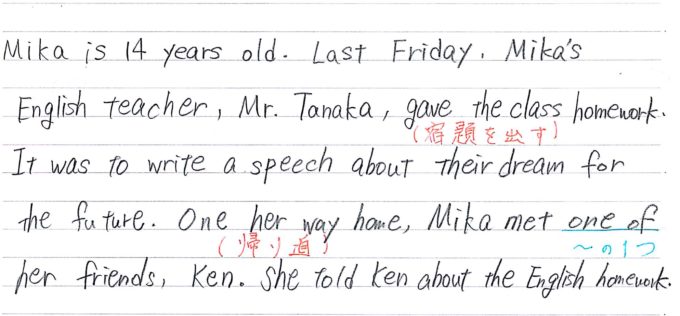 Mika is 14 years old. Last Friday, Mika's
English teacher, Mr. Tanaka, gave the class homework.
(宿題を出す)
It was to write a speech about their dream for
the future. One her way home, Mika met one of
(帰り道) 〜の1つ
her friends, Ken. She told Ken about the English homework.